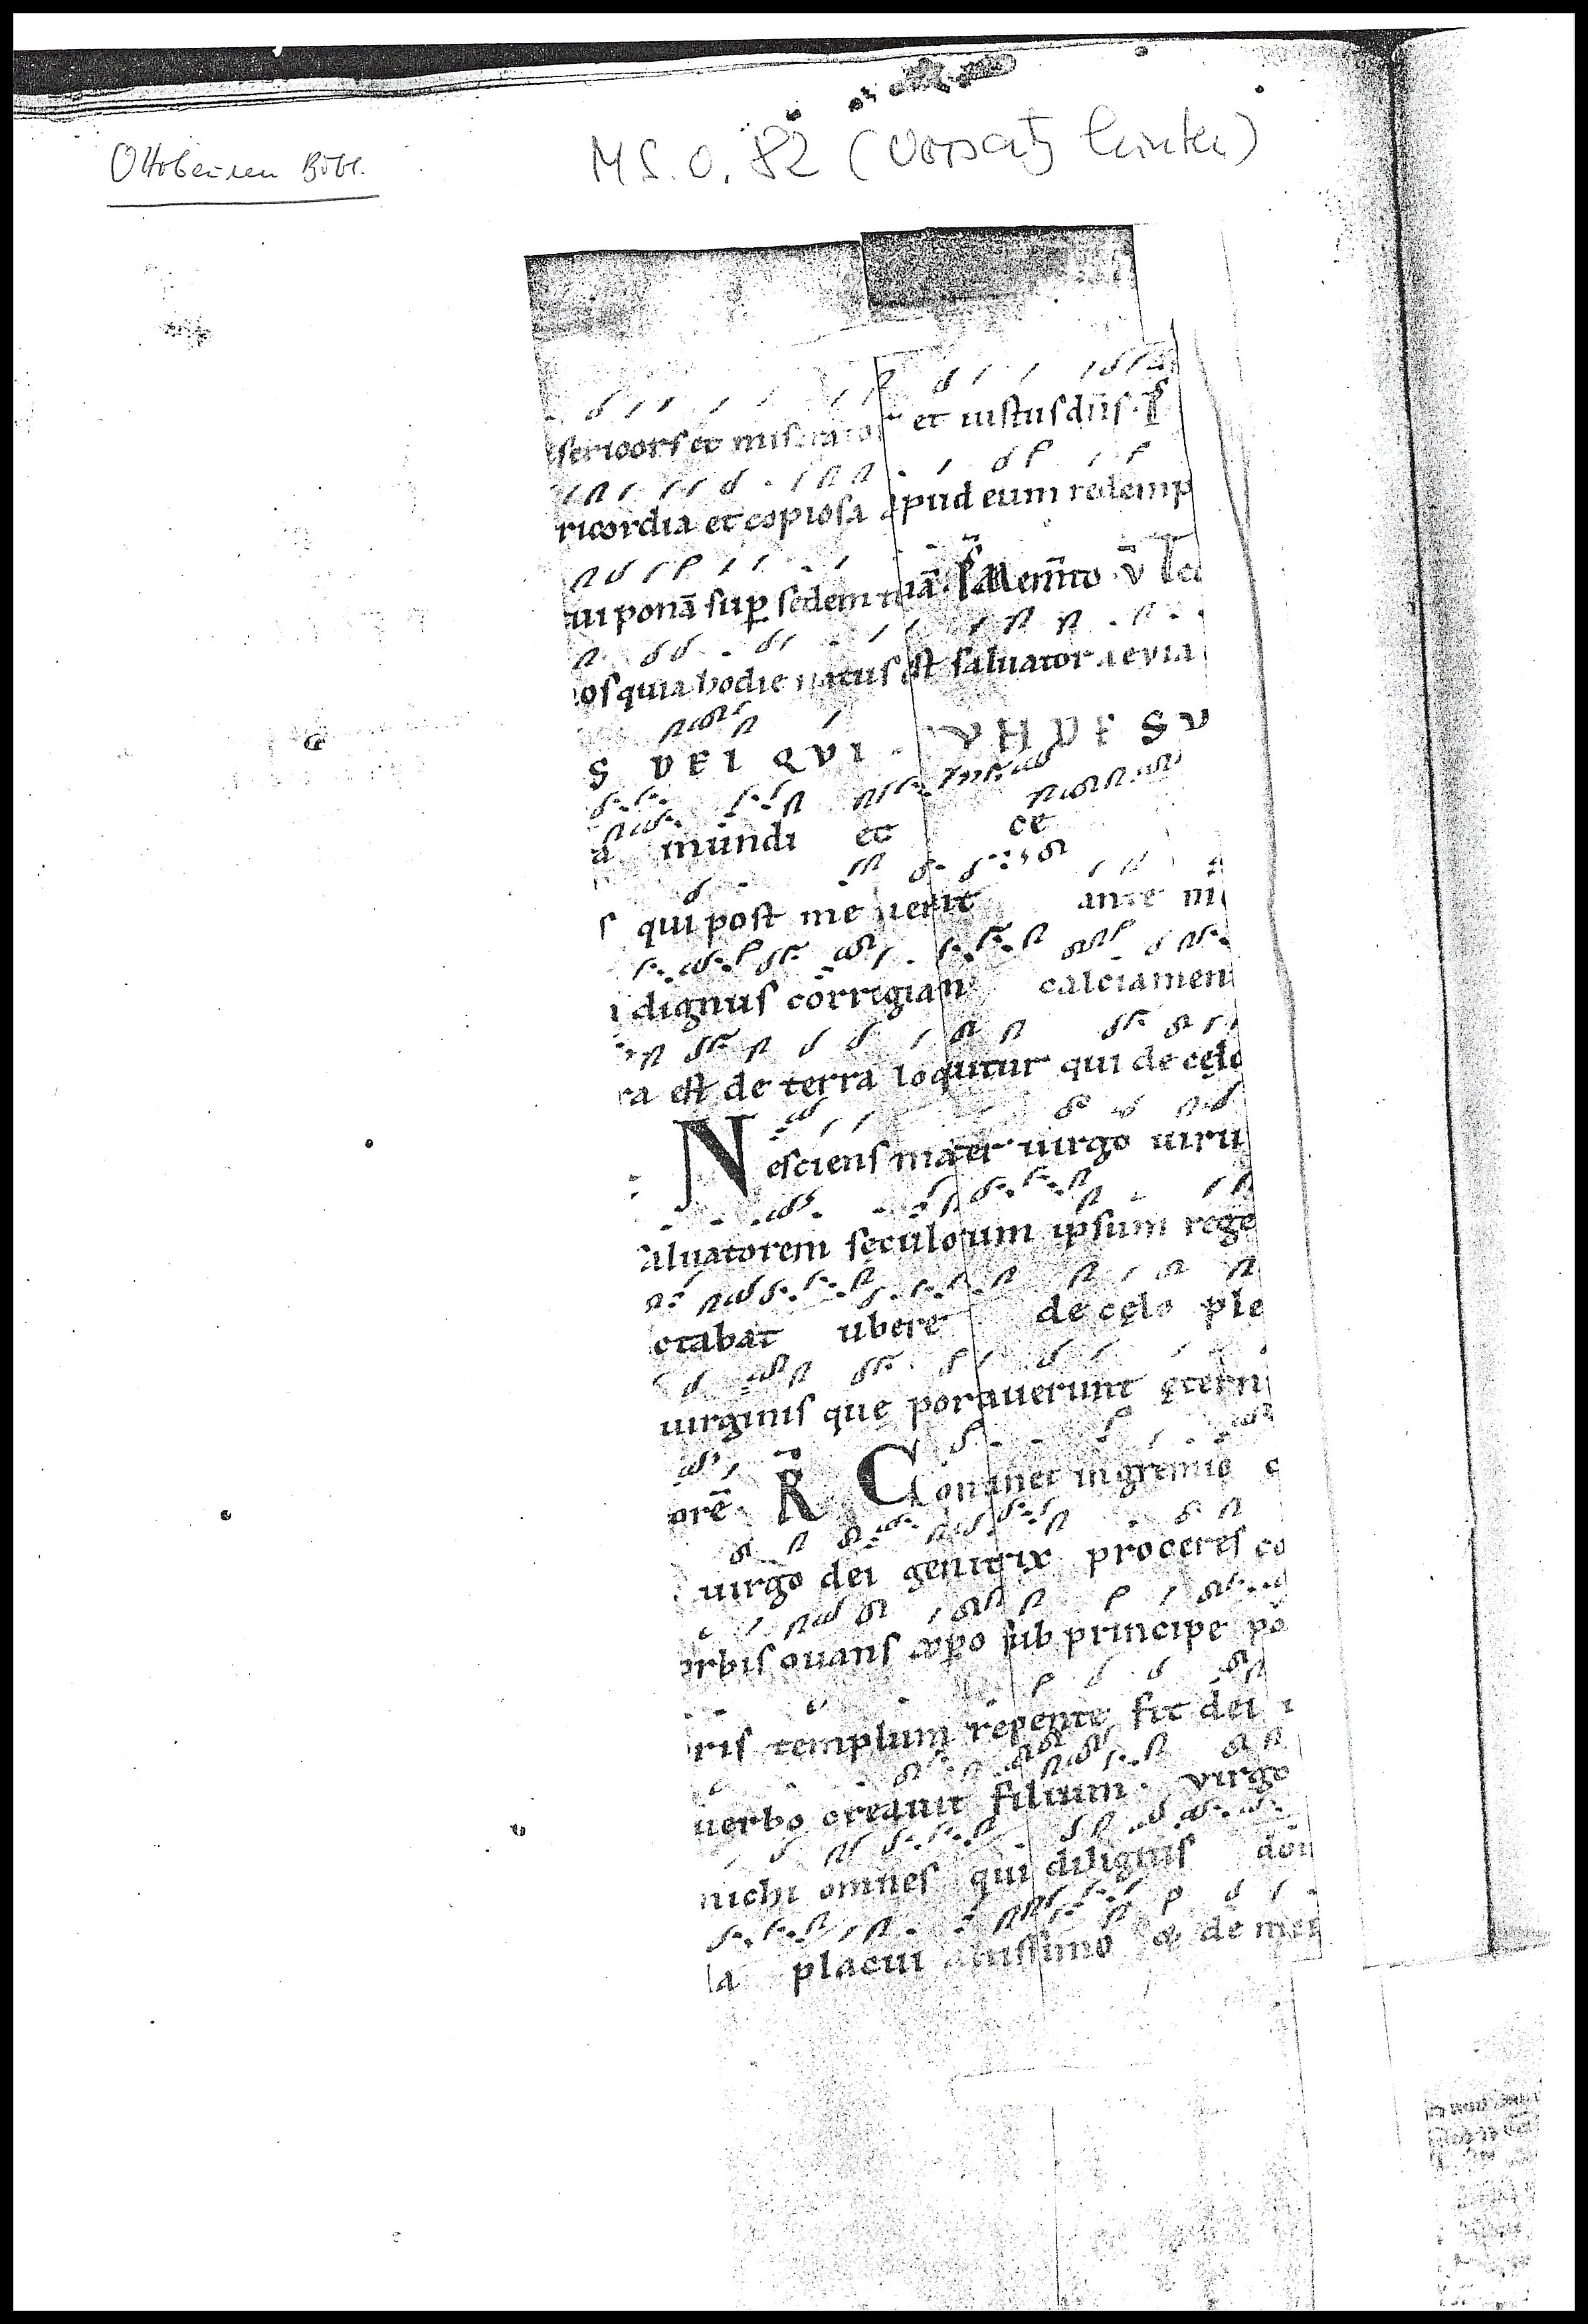 Ottobeuren Bibl.
MS. O. 82 (Vorsatz hinten)
sericorſ et miserator et iuſtuſ dn̄ſ. pſ
ricordia et copioſa apud eum redemp
ui ponā ſup ſedem tuā. pſ Mem̄to v̄
oſ quia hodie natuſ eſt ſaluator aeuia
S DEI QVI
a mundi et ce
ſ qui poſt me uenit ante m
i dignuſ corrigiam calciamen
ra eſt de terra loquitur qui de cęlo
Neſcienſ mater uirgo uiru
aluatorem ſęculorum ipſum rege
ctabat ubere de cęlo ple
uirginiſ que portauerunt ętern
orē. R̄ Continet in gremio c
uirgo dei genitrix proceres co
orbiſ ouanſ xp̄o ſub principe po
riſ templum repente fit dei
uerbo creauit filium. virgo
michi omneſ qui diligitiſ dōm
la placui altiſſimo & de me